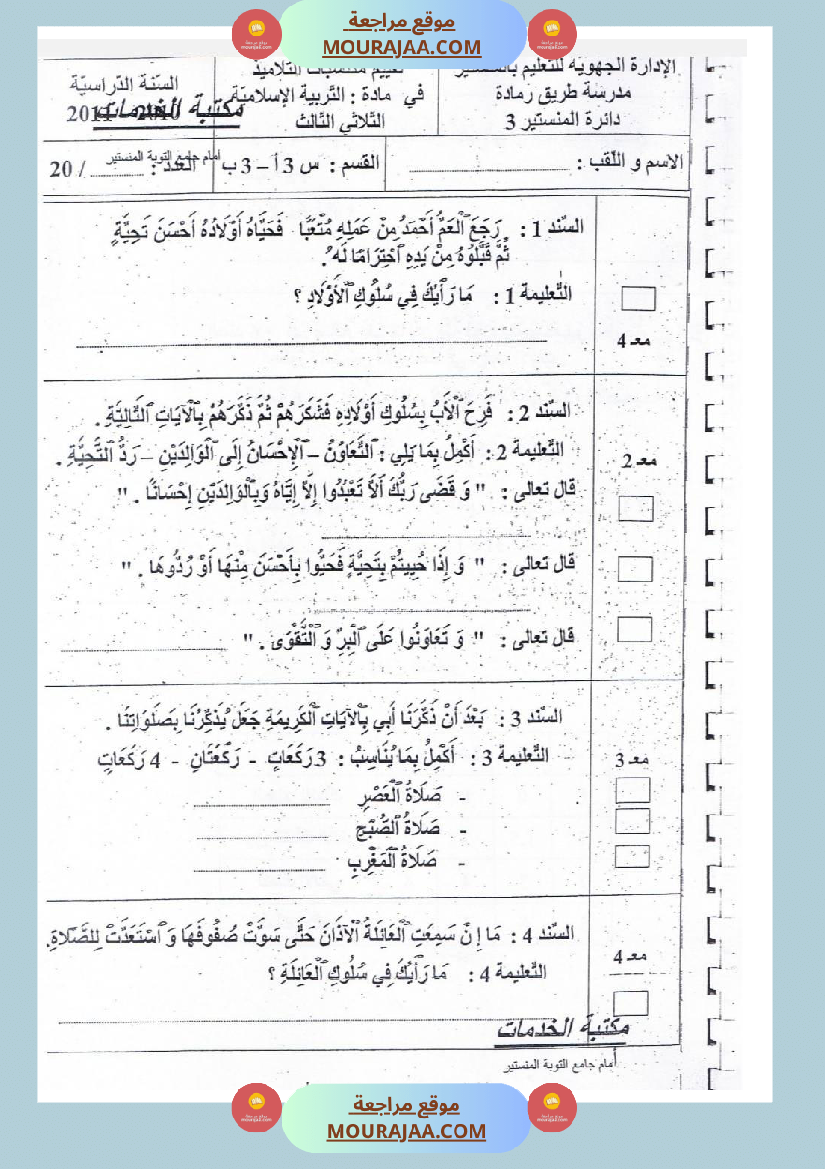 موقع مراجعة
MOURAJAA.COM
الإدارة الجهويّة للتعليم بالمنستير
مدرسة طريق زمادة
دائرة المنستير 3
تقييم مكتسبات التلاميذ
في مادة : التّربية الإسلاميّة
الثّلاثي الثّالث
السّنة الدّراسيّة
مكتبة الخدمات
أمام جامع التوبة المنستير
الاسم و اللّقب : ....................
القسم : س 3 أ – 3 ب
العدد : .......... / 20
السّند 1 : رَجَعَ الْعَمُّ أَحْمَدُ مِنْ عَمَلِهِ مُتْعَبًا فَحَيَّاهُ أَوْلَادُهُ أَحْسَنَ تَحِيَّةٍ
ثُمَّ قَبَّلُوهُ مِنْ يَدِهِ احْتِرَامًا لَهُ.
التّعليمة 1 : مَا رَأْيُكَ فِي سُلُوكِ الْأَوْلَادِ ؟
معـ 4
السّند 2 : فَرِحَ الْأَبُ بِسُلُوكِ أَوْلَادِهِ فَشَكَرَهُمْ ثُمَّ ذَكَّرَهُمْ بِالْآيَاتِ التَّالِيَةِ .
التّعليمة 2 : أُكْمِلُ بِمَا يَلِي : التَّعَاوُنُ – الْإِحْسَانُ إِلَى الْوَالِدَيْنِ – رَدُّ التَّحِيَّةِ .
معـ 2
قال تعالى : " وَ قَضَى رَبُّكَ أَلَّا تَعْبُدُوا إِلَّا إِيَّاهُ وَبِالْوَالِدَيْنِ إِحْسَانًا . "
قال تعالى : " وَ إِذَا حُيِيتُمْ بِتَحِيَّةٍ فَحَيُّوا بِأَحْسَنَ مِنْهَا أَوْ رُدُّوهَا . "
قال تعالى : " وَ تَعَاوَنُوا عَلَى الْبِرِّ وَ التَّقْوَى . " ....................
السّند 3 : بَعْدَ أَنْ ذَكَّرَنَا أَبِي بِالْآيَاتِ الْكَرِيمَةِ جَعَلَ يُذَكِّرُنَا بِصَلَوَاتِنَا .
التّعليمة 3 : أُكْمِلُ بِمَا يُنَاسِبُ : 3 رَكَعَاتٍ - رَكْعَتَانِ - 4 رَكَعَاتٍ
معـ 3
- صَلَاةُ الْعَصْرِ ....................
- صَلَاةُ الصُّبْحِ ....................
- صَلَاةُ الْمَغْرِبِ ....................
السّند 4 : مَا إِنْ سَمِعَتِ الْعَائِلَةُ الْآذَانَ حَتَّى سَوَّتْ صُفُوفَهَا وَ اسْتَعَدَّتْ لِلصَّلَاةِ.
معـ 4
التّعليمة 4 : مَا رَأْيُكَ فِي سُلُوكِ الْعَائِلَةِ ؟
مكتبة الخدمات
أمام جامع التوبة المنستير
موقع مراجعة
MOURAJAA.COM